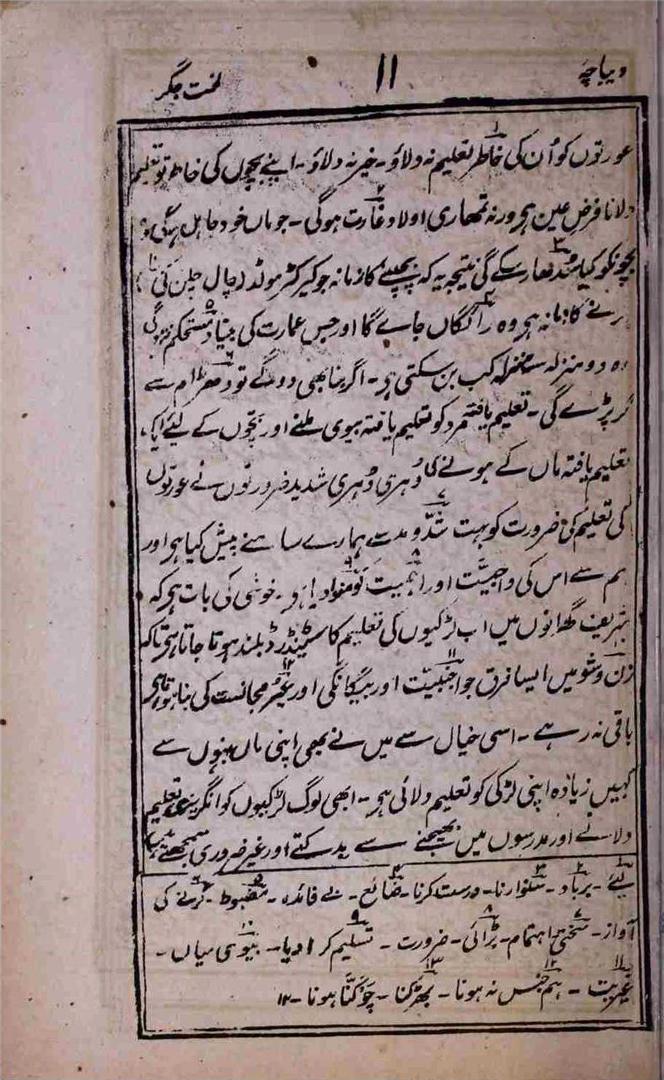 دیباچہ ۱۱ لخت جگر
عورتوں کو اُن کی خاطر تعلیم نہ دلاؤ۔ خیر نہ دلاؤ۔ اپنے بچوں کی خاطر تو تعلیم
دلانا فرض عین ہے ورنہ تمھاری اولاد غارت ہوگی۔ جو ماں خود جاہل ہوگی وہ
بچونکو کیا سُدھار سکے گی نتیجہ یہ کہ بچپنے کا زمانہ جو کیرکٹر مولڈ (چال چلن کی
کرنے کا زمانہ ہے وہ رائگاں جاے گا اور جس عمارت کی بنیاد مستحکم نہوگی
وہ دو منزلہ سہ منزلہ کب بن سکتی ہے۔ اگر بنا بھی دوگے تو دھڑام سے
گر پڑے گی۔ تعلیم یافتہ مرد کو تعلیم یافتہ بیوی ملنے اور بچّوں کے لئے ایک
تعلیم یافتہ ماں کے ہونے کی دُہری دُہری شدید ضرورتوں نے عورتوں
کی تعلیم کی ضرورت کو بہت شدّ و مد سے ہمارے سامنے پیش کیا ہے اور
ہم سے اس کی واجبیّت اور اہمیت کو منوا دیا ہے۔ خوشی کی بات ہے کہ
شریف گھرانوں میں اب لڑکیوں کی تعلیم کا سٹینڈرڈ بلند ہوتا جاتا ہے تاکہ
زن و شو میں ایسا فرق جو اجنبیّت اور بیگانگی اور غیر مجانست کی بنا ہوتا ہے
باقی نہ رہے۔ اسی خیال سے میں نے بھی اپنی ماں بہنوں سے
کہیں زیادہ اپنی لڑکی کو تعلیم دلائی ہے۔ ابھی لوگ لڑکیوں کو انگریزی تعلیم
دلانے اور مدرسوں میں بھیجنے سے بدکتے اور غیر ضروری سمجھتے ہیں
لئے۔ برباد۔ سنوارنا۔ درست کرنا۔ ضائع۔ بے فائدہ۔ مضبوط۔ گرنے کی
آواز۔ سختی اہتمام۔ بڑائی۔ ضرورت۔ تسلیم کرا دیا۔ بیوی میاں۔
غیریت۔ ہم جنس نہ ہونا۔ بھڑکنا۔ چوکنّا ہونا۔ ۱۲